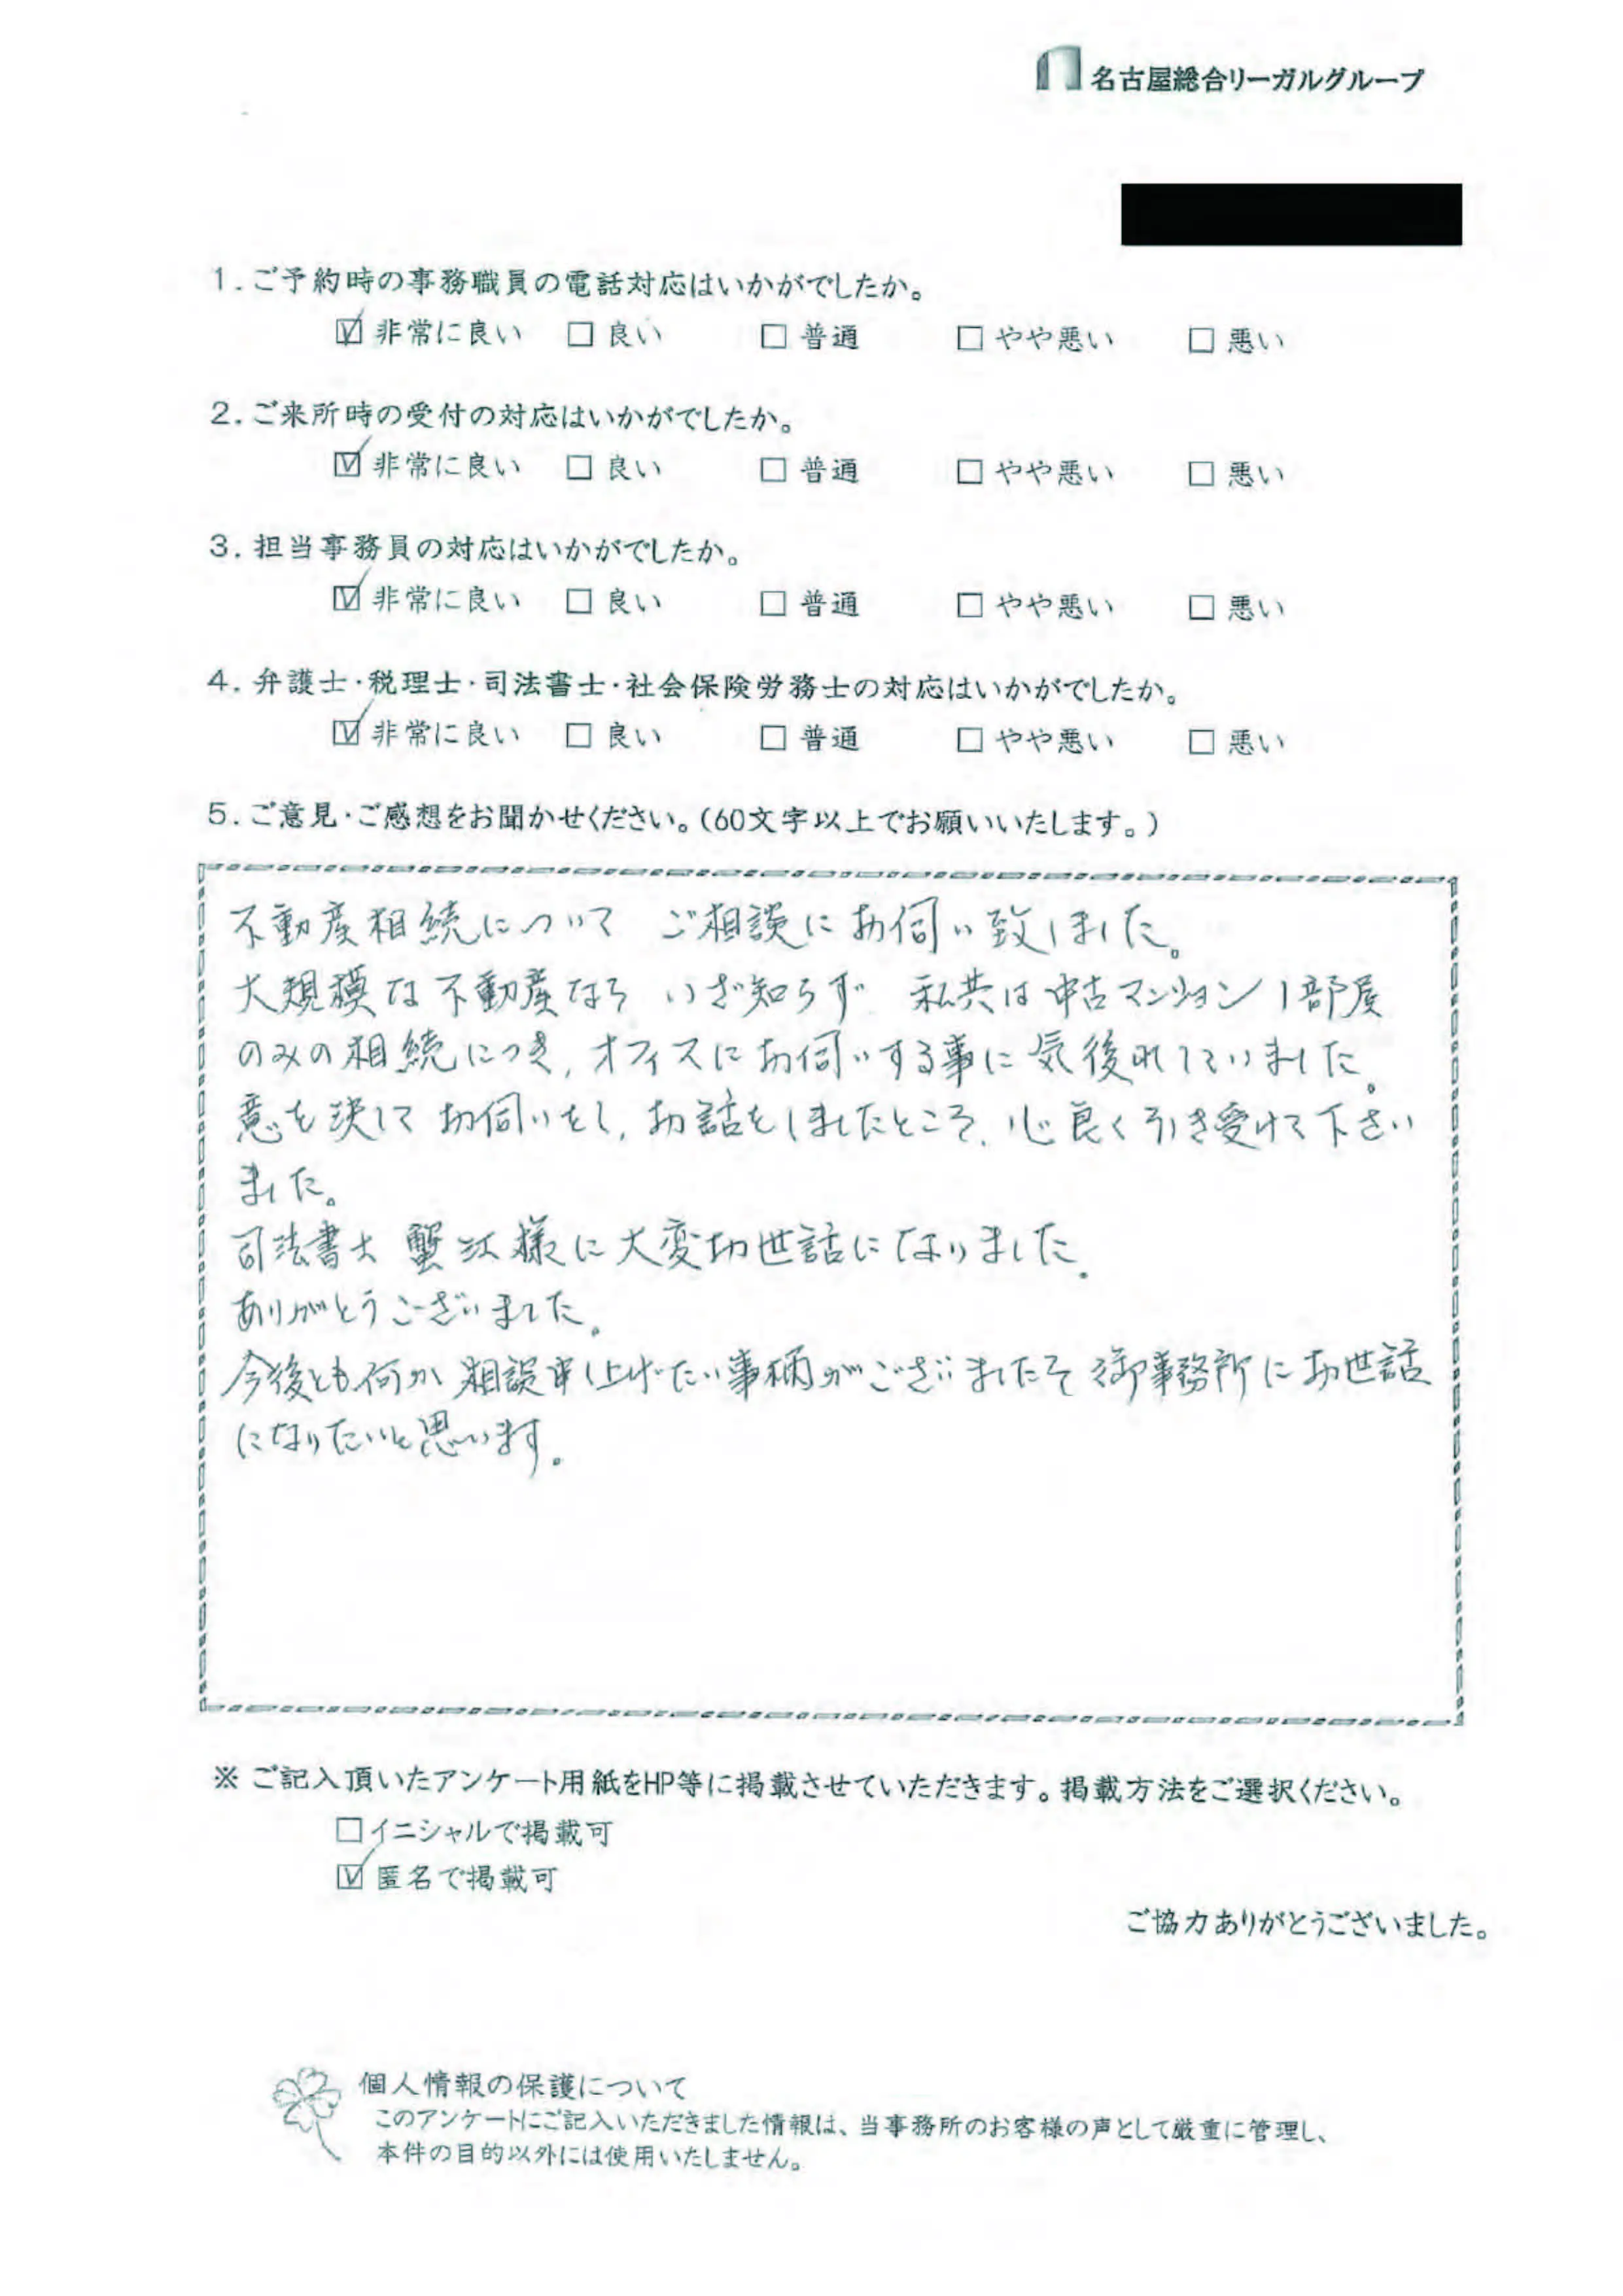 名古屋総合リーガルグループ
1.ご予約時の事務職員の電話対応はいかがでしたか。
☑ 非常に良い □ 良い □ 普通 □ やや悪い □ 悪い
2.ご来所時の受付の対応はいかがでしたか。
☑ 非常に良い □ 良い □ 普通 □ やや悪い □ 悪い
3.担当事務員の対応はいかがでしたか。
☑ 非常に良い □ 良い □ 普通 □ やや悪い □ 悪い
4.弁護士・税理士・司法書士・社会保険労務士の対応はいかがでしたか。
☑ 非常に良い □ 良い □ 普通 □ やや悪い □ 悪い
5.ご意見・ご感想をお聞かせください。(60文字以上でお願いいたします。)
不動産相続について ご相談にお伺い致しました。
大規模な不動産なら いざ知らず 私共は中古マンション1部屋
のみの相続につき、オフィスにお伺いする事に気後れしていました。
意を決して お伺いをし、お話をしましたところ、心良く引き受けて下さい
ました。
司法書士 蟹江様に大変お世話になりました。
ありがとうございました。
今後とも何か 相談申し上げたい事柄がございましたら 御事務所にお世話
になりたいと思います。
※ ご記入頂いたアンケート用紙をHP等に掲載させていただきます。掲載方法をご選択ください。
□イニシャルで掲載可
☑ 匿名で掲載可
ご協力ありがとうございました。
個人情報の保護について
このアンケートにご記入いただきました情報は、当事務所のお客様の声として厳重に管理し、
本件の目的以外には使用いたしません。